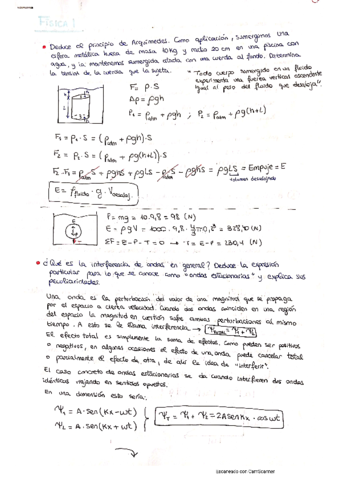 FÍSICA I
• Deduce el principio de Arquímedes. Como aplicación, sumergimos una
esfera metálica hueca de masa 10 kg y radio 20 cm en una piscina con
agua, y la mantenemos sumergida atada con una cuerda al fondo. Determina
la tensión de la cuerda que la sujeta.
"Todo cuerpo sumergido en un fluido
experimenta una fuerza vertical ascendente
igual al peso del fluido que desaloja"
F = p · S
Δp = ρgh
P₁ = Patm + ρgh ; P₂ = Patm + ρg(h+L)
F₁ = P₁ · S = (Patm + ρgh) · S
F₂ = P₂ · S = (Patm + ρg(h+L)) · S
F₂ - F₁ = Patm S + ρghS + ρgLS - Patm S - ρghS = ρgLS = Empuje = E
volumen desalojado
E = ρfluido · g · Vdesaloj
P = mg = 10 · 9,8 = 98 (N)
ΣF = E - P - T = 0 → T = E - P
• ¿Qué es la interferencia de ondas en general? Deduce la expresión
particular para lo que se conoce como "ondas estacionarias" y explica sus
peculiaridades.
Una onda es la perturbación del valor de una magnitud que se propaga
por el espacio a cierta velocidad. Cuando dos ondas coinciden en una región
del espacio la magnitud en cuestión sufre ambas perturbaciones al mismo
tiempo. A esto se le llama interferencia. → Ψtotal = Ψ₁ + Ψ₂
El efecto total es simplemente la suma de efectos. Como pueden ser positivos
o negativos, en algunas ocasiones el efecto de una onda puede cancelar total
o parcialmente el efecto de otra, de ahí la idea de "interferir".
El caso concreto de ondas estacionarias se da cuando interfieren dos ondas
idénticas viajando en sentidos opuestos.
En una dimensión esto sería:
Ψ₁ = A · sen(Kx - wt)
Ψ₂ = A · sen(Kx + wt)
Ψт = Ψ₁ + Ψ₂ = 2A sen Kx · cos wt
Escaneado con CamScanner